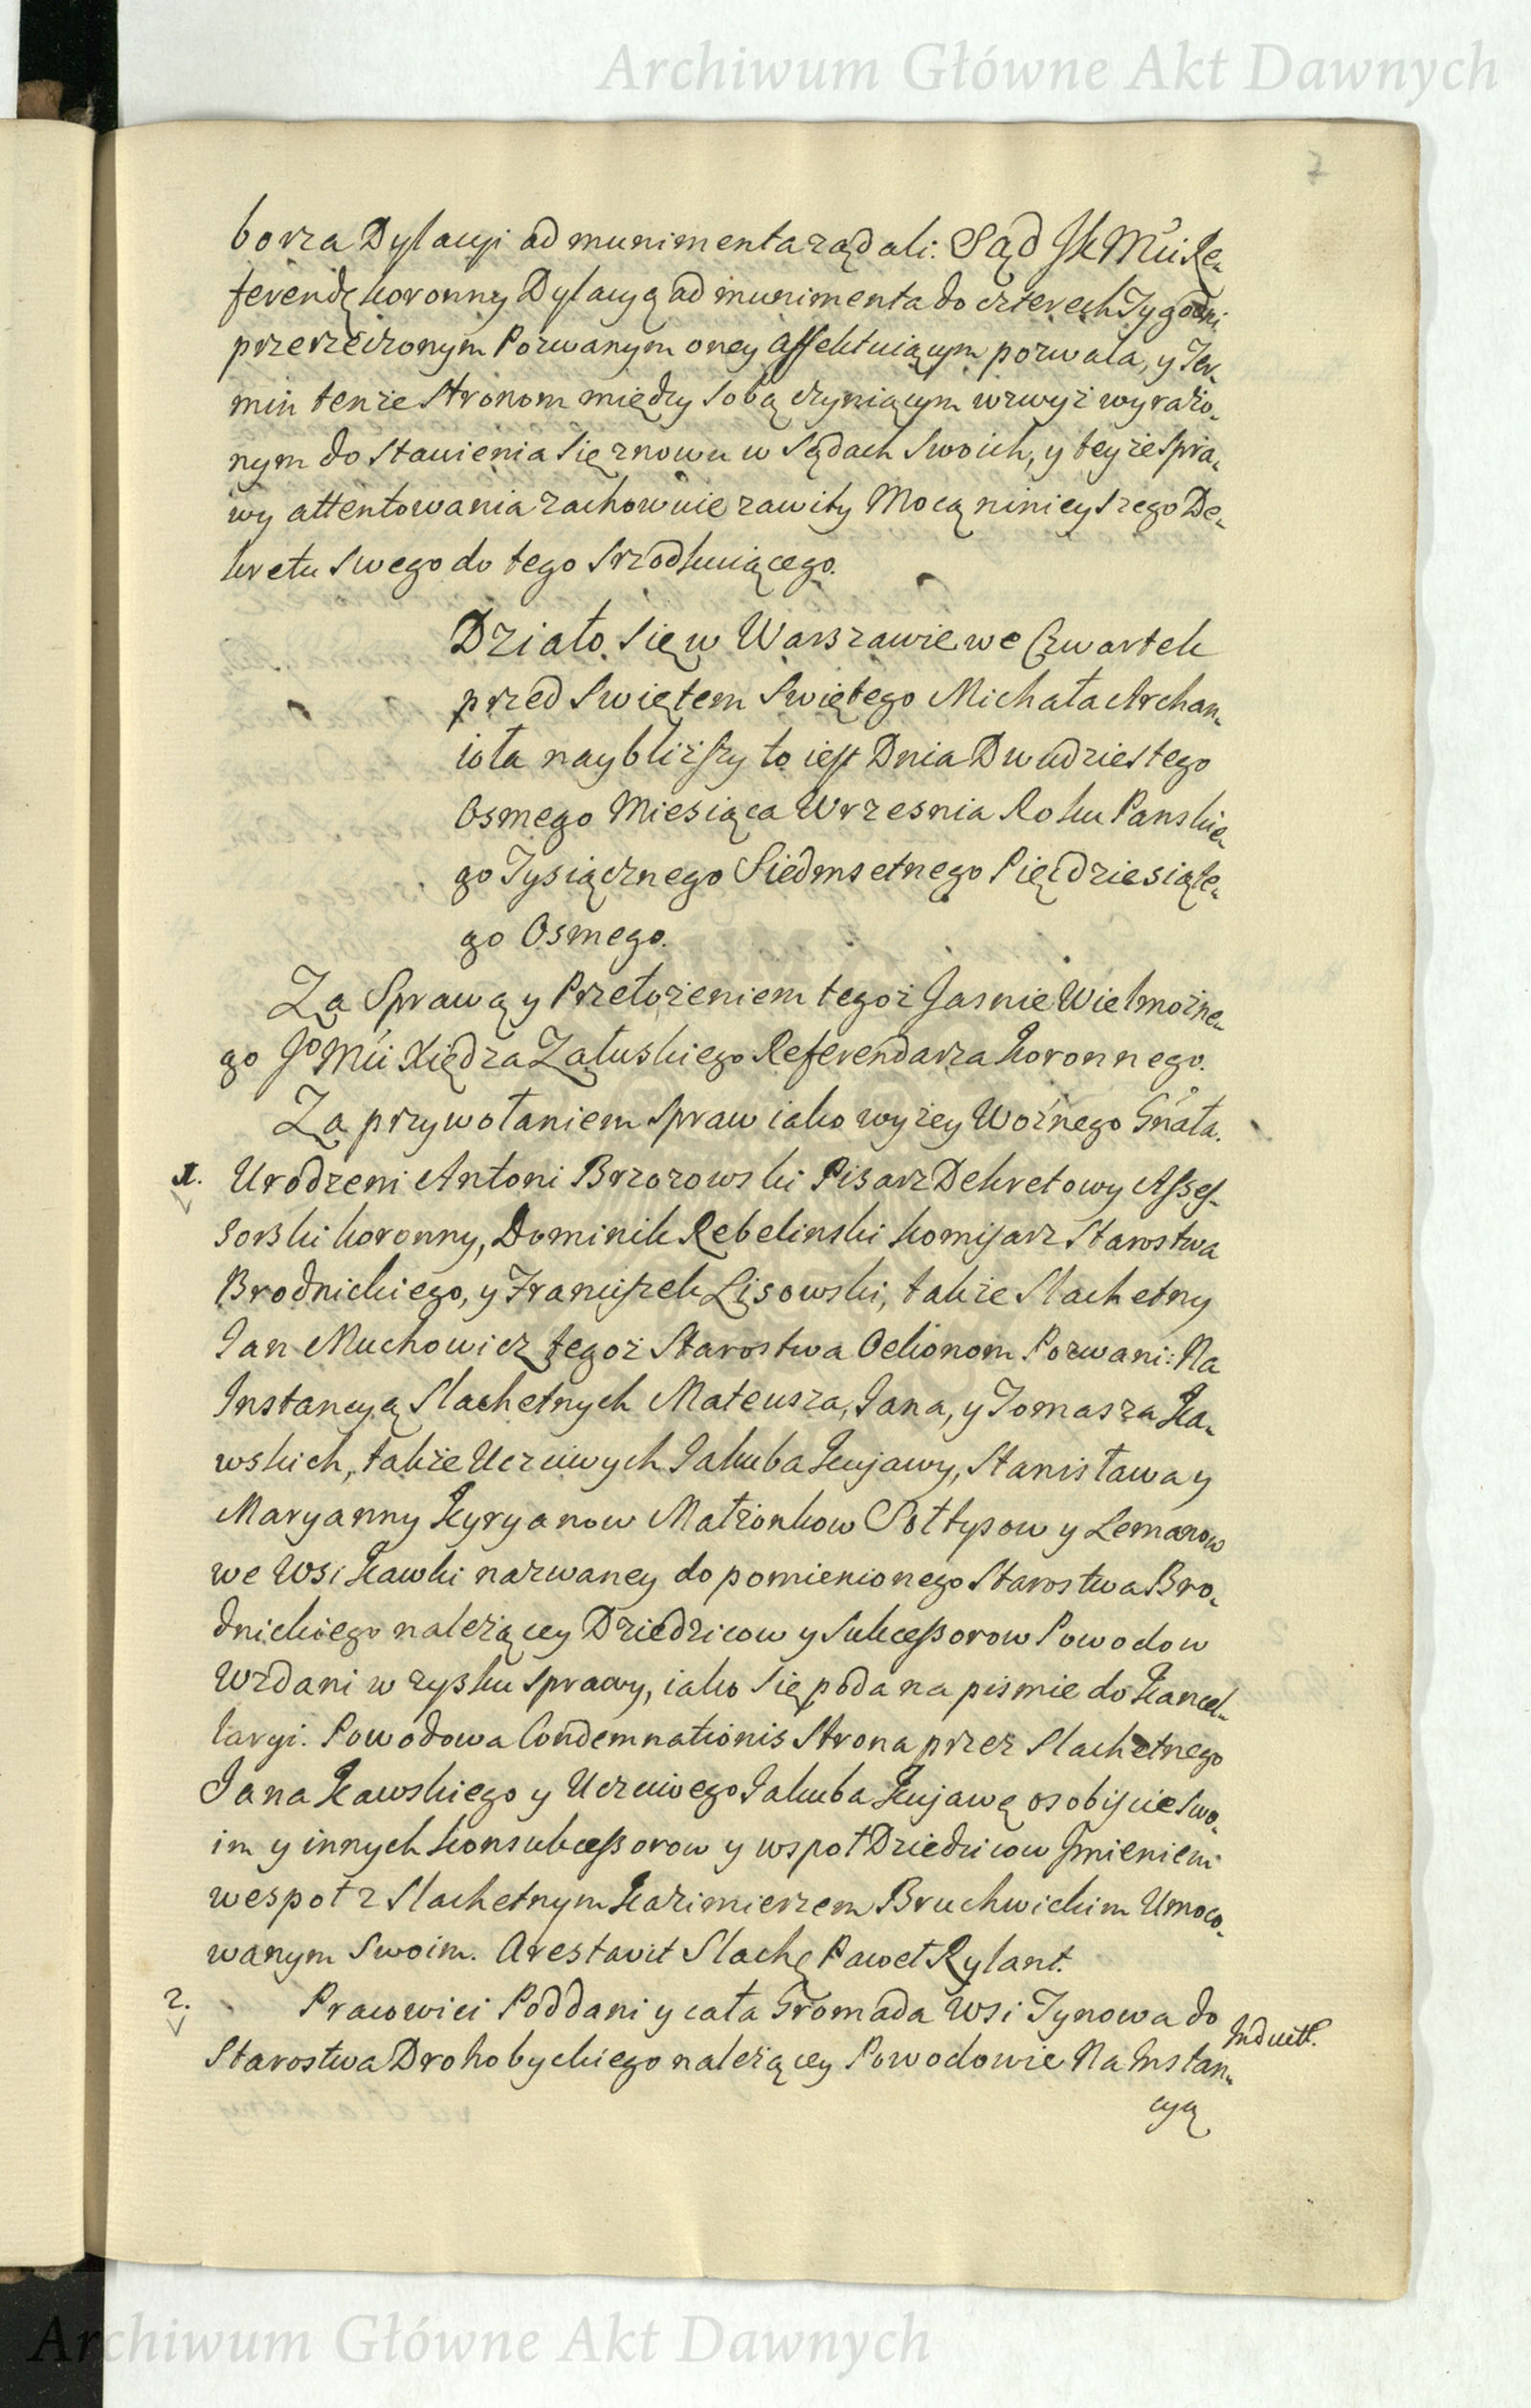 Archiwum Główne Akt Dawnych
7
borza Dylacyi ad munimenta rządali: Sąd JKMci Re-
ferendę koronny Dylacyą ad munimenta do czterech Tygodni
przerzeczonym Pozwanym oney affektuiącym pozwala, y Ter-
min tenże Stronom między sobą czyniącym wzwyż wyrażo-
nym do stawienia się znowu w Sądach swoich, y teyże spra-
wy attentowania zachowuie zawity Mocą ninieyszego De-
kretu swego do tego srzodkuiącego.
Działo się w Warszawie we Czwartek
przed Swiętem Swiętego Michała Archan-
ioła nayblizszy to iest Dnia Dwudziestego
Osmego Miesiąca Wrzesnia Roku Panskie-
go Tysiącznego Siedmsetnego Pięcdziesiąte-
go Osmego.
Za Sprawą y Przełożeniem tegoż Jasnie Wielmożne-
go Jo Mci Xiędza Załuskiego Referendarza koronnego.
Za przywołaniem spraw iako wyżey Woźnego Gnała.
1. Urodzeni Antoni Brzozowski Pisarz Dekretowy Asses-
sorski koronny, Dominik Rebelinski komisarz Starostwa
Brodnickiego, y Franciszek Lisowski, także Slachetny
Jan Muchowicz tegoż Starostwa Oekonom Pozwani: Na
Instancyą Slachetnych Mateusza, Jana, y Tomasza Ka-
wskich, także Uczciwych Jakuba Kujawy, Stanisława y
Maryanny Kyryanow Małżonkow Sołtysow y Lemanow
we Wsi Kawki nazwaney do pomienionego Starostwa Bro-
dnickiego należącey Dziedzicow y Sukcessorow Powodow
Wzdani w zysku sprawy, iako się poda na pismie do Kancel-
laryi. Powodowa Condemnationis Strona przez Slachetnego
Jana Kawskiego y Uczciwego Jakuba Kujawę osobiscie swo-
im y innych konsukcessorow y wspoł Dziedzicow Jmieniem
wespoł z Slachetnym Kazimierzem Bruchwickim Umoco-
wanym swoim. Arestavit Slachę Paweł Rylant.
2. Pracowici Poddani y cała Gromada Wsi Tynowa do
Starostwa Drohobyckiego należącey Powodowie Na Instan-
cyą
Archiwum Główne Akt Dawnych